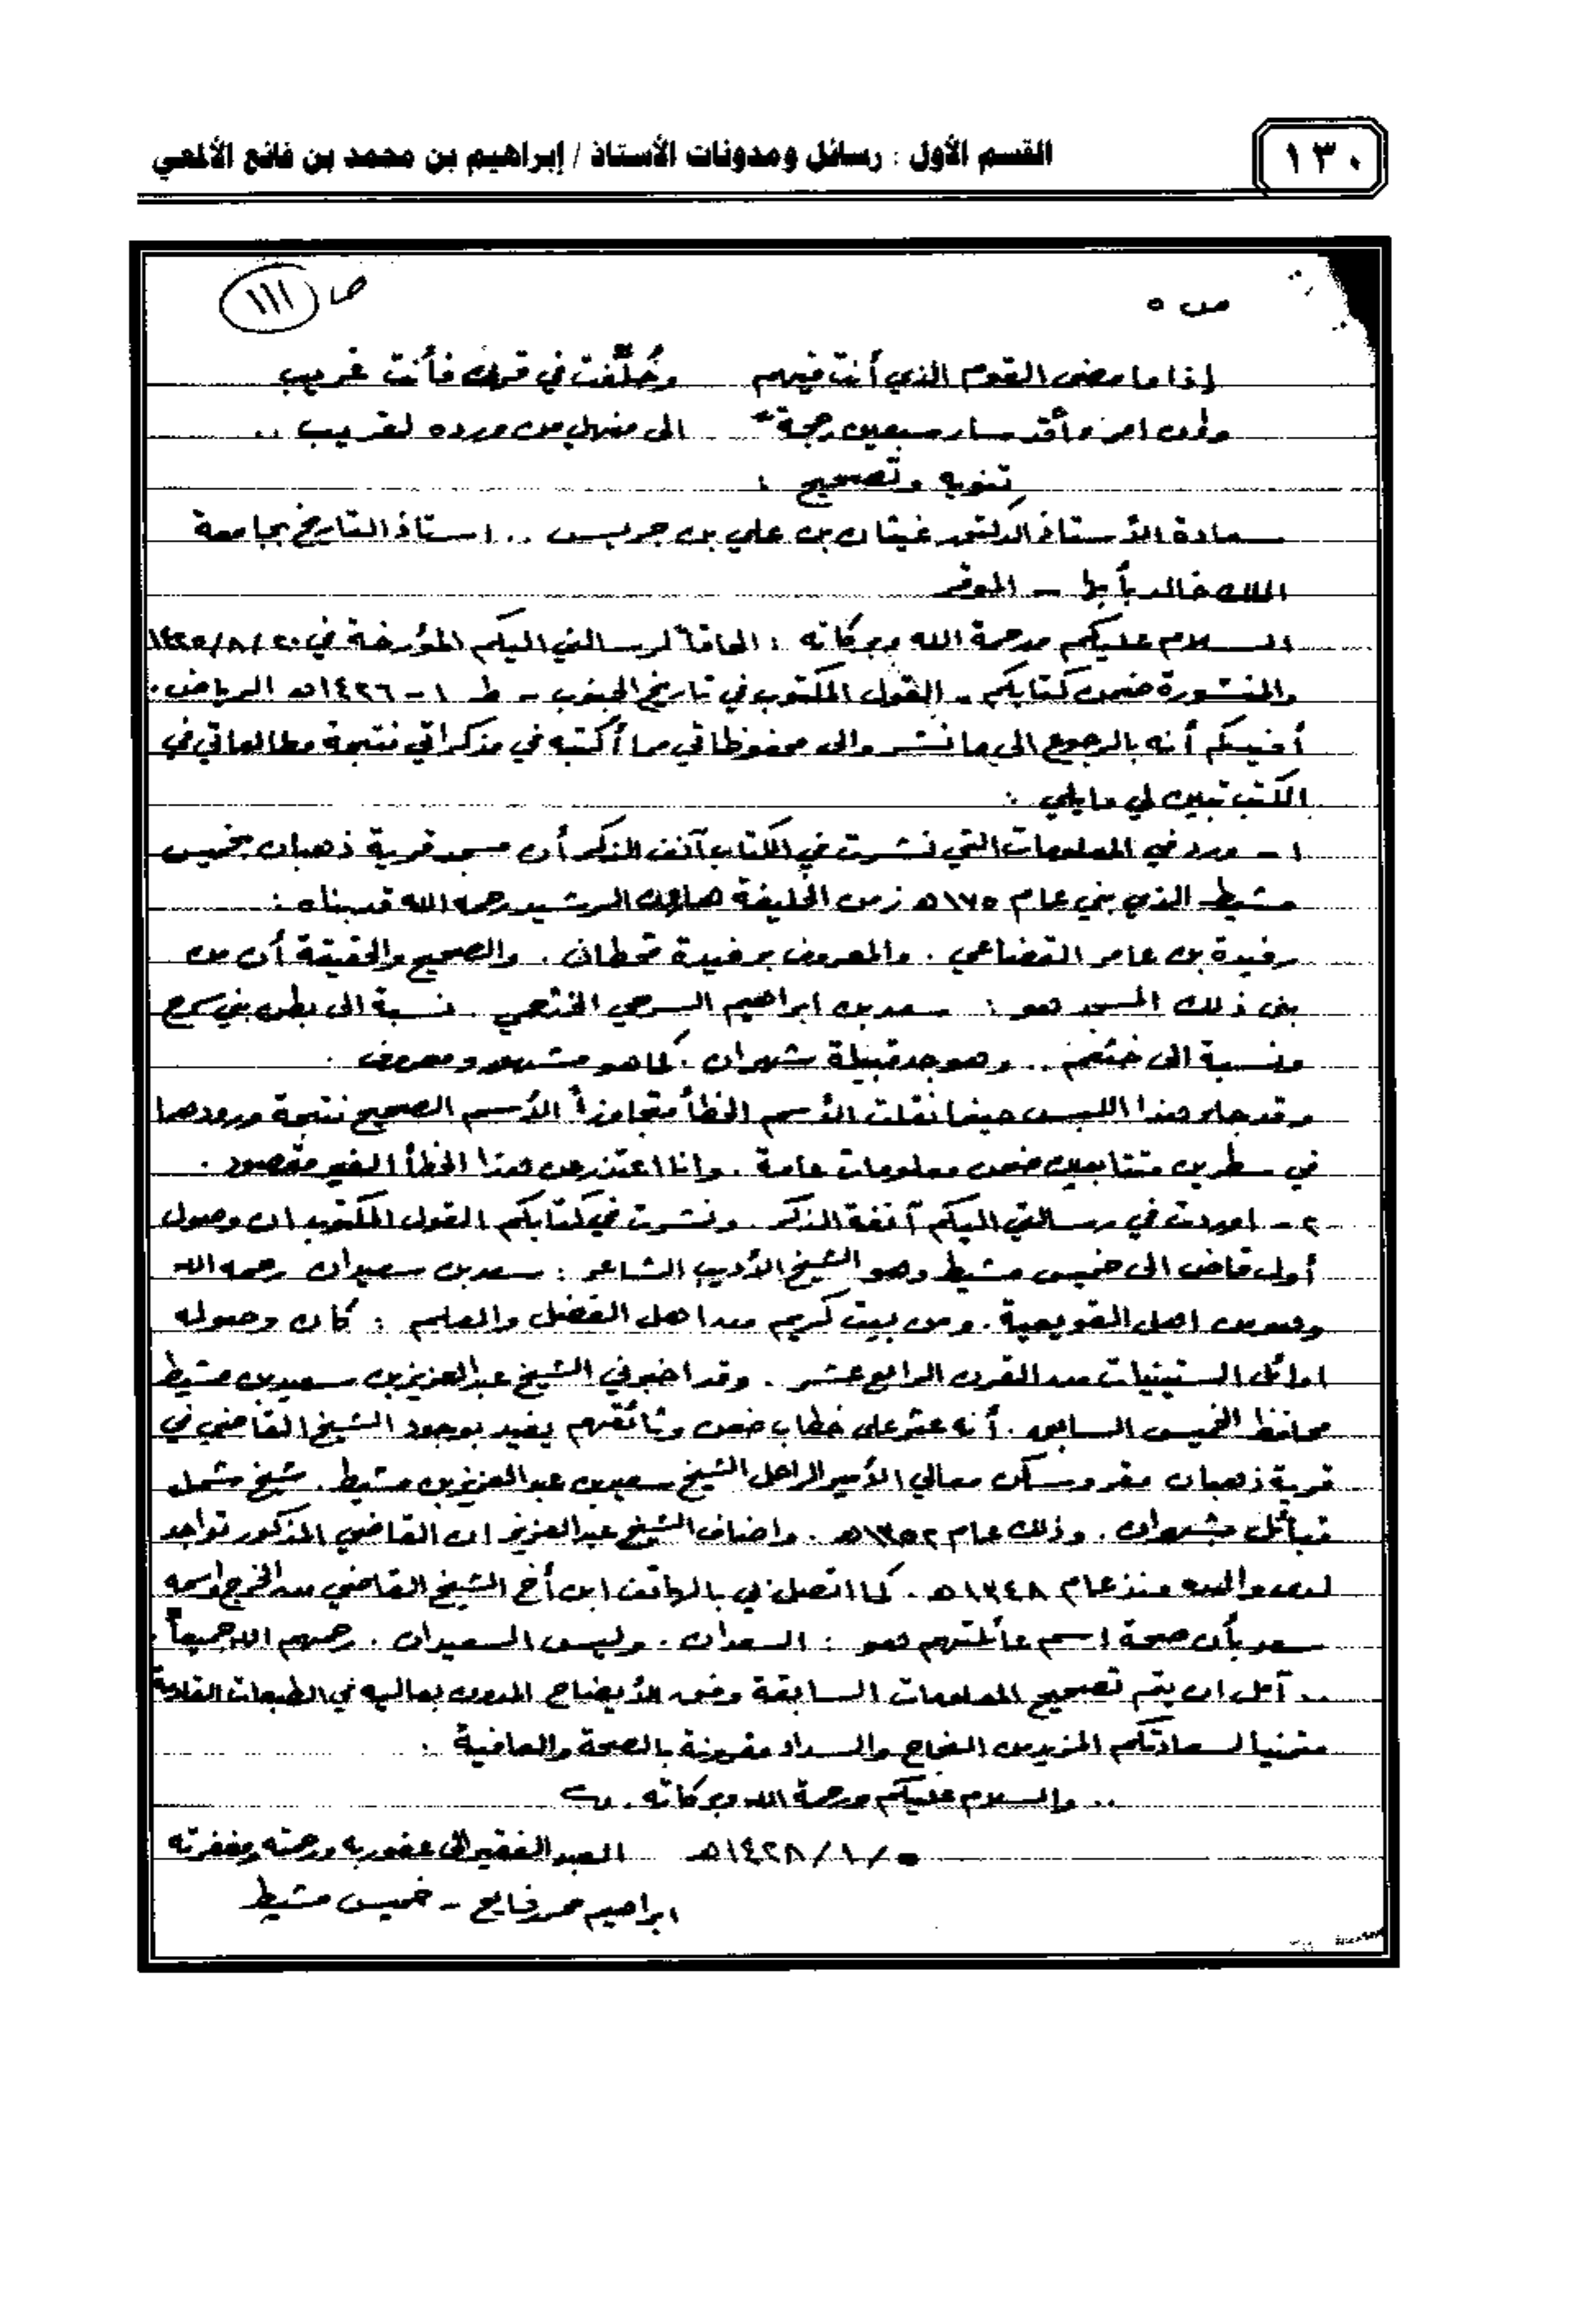 ١٣٠
القسم الأول : رسائل ومدونات الأستاذ / إبراهيم بن محمد بن فائع الألمعي
ص ٥
ص (١١١)
إذا ما مضى القوم الذي أنت فيهم وخُلِّفت في قرن فأنت غريب
وإن امرءاً قد سار سبعين حجةً الى منهل من ورده لقريب ..
تنويه وتصحيح :
سعادة الأستاذ الدكتور غيثان بن علي بن جريس .. استاذ التاريخ بجامعة
الملك خالد بأبها – الموقر
السلام عليكم ورحمة الله وبركاته : الحاقاً لرسالتي اليكم المؤرخة في ٢٠/٨/١٤٢٥
والمنشورة ضمن كتابكم - القول المكتوب في تاريخ الجنوب - ط ١ - ١٤٢٦هـ الرياض.
أفيدكم أنه بالرجوع الى ما نشر والى محفوظاتي مما أكتبه في مذكراتي نتيجة مطالعاتي في
الكتب تبين لي ما يلي :
١ - ورد في المعلومات التي نشرت في الكتاب آنف الذكر أن مسجد قرية ذهبان بخميس
مشيط الذي بني عام ١٧٥هـ زمن الخليفة هارون الرشيد رحمه الله قد بناه :
رفيدة بن عامر القضاعي . والمعروف برفيدة قحطان . والصحيح والحقيقة أن من
بنى ذلك المسجد هو : سعد بن ابراهيم السرحي الخثعمي . نسبة الى بطن بني سرح
ونسبة الى خثعم .. وهو جد قبيلة شهران . كما هو مشهور ومعروف .
وقد جاء هذا اللبس حينما نقلت الأسم الخطأ متجاوزاً الأسم الصحيح نتيجة ورودهما
في سطرين متتابعين ضمن معلومات عامة . وانا اعتذر عن هذا الخطأ الغير مقصود .
٢ - اوردت في رسالتي اليكم آنفة الذكر . ونشرت في كتابكم القول المكتوب ان وصول
أول قاضي الى خميس مشيط وهو الشيخ الأديب الشاعر : سعد بن سعيدان رحمه الله
وهو من اهل القويعية . ومن بيت كريم من اهل الفضل والعلم : كان وصوله
اوائل الستينيات من القرن الرابع عشر . وقد اخبرني الشيخ عبدالعزيز بن سعيد بن مشيط
محافظ الخميس السابق . أنه عثر على خطاب ضمن وثائقهم يفيد بوجود الشيخ القاضي في
قرية ذهبان مقر وسكن معالي الأمير الراحل الشيخ سعيد بن عبدالعزيز بن مشيط . شيخ شمل
قبائل شهران . وذلك عام ١٣٥٢هـ . واضاف الشيخ عبدالعزيز ان القاضي المذكور تواجد
لدى والده منذ عام ١٣٤٨هـ . كما اتصل بي بالهاتف ابن أخ الشيخ القاضي من الخرج واسمه
سعد بأن صحة اسم عائلتهم هو : السعدان . وليس السعيدان . رحمهم الله جميعاً .
.. آمل ان يتم تصحيح المعلومات السابقة وفق الأيضاح المدون بعاليه في الطبعات القادمة
متمنيا لسعادتكم المزيد من النجاح والسداد مقرونة بالصحة والعافية .
.. والسلام عليكم ورحمة الله وبركاته .
٥/١/١٤٢٨هـ العبد الفقير الى عفو ربه ورحمته ومغفرته
ابراهيم محمد فايع - خميس مشيط